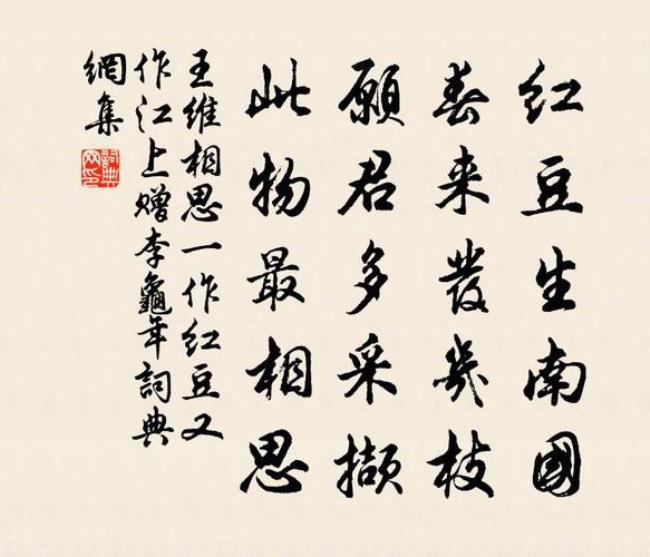 红豆生南國
春来發幾枝
願君多采擷
此物最相思
王维相思一作红豆又
作江上赠李龜年詞典
網集
詞典
网印